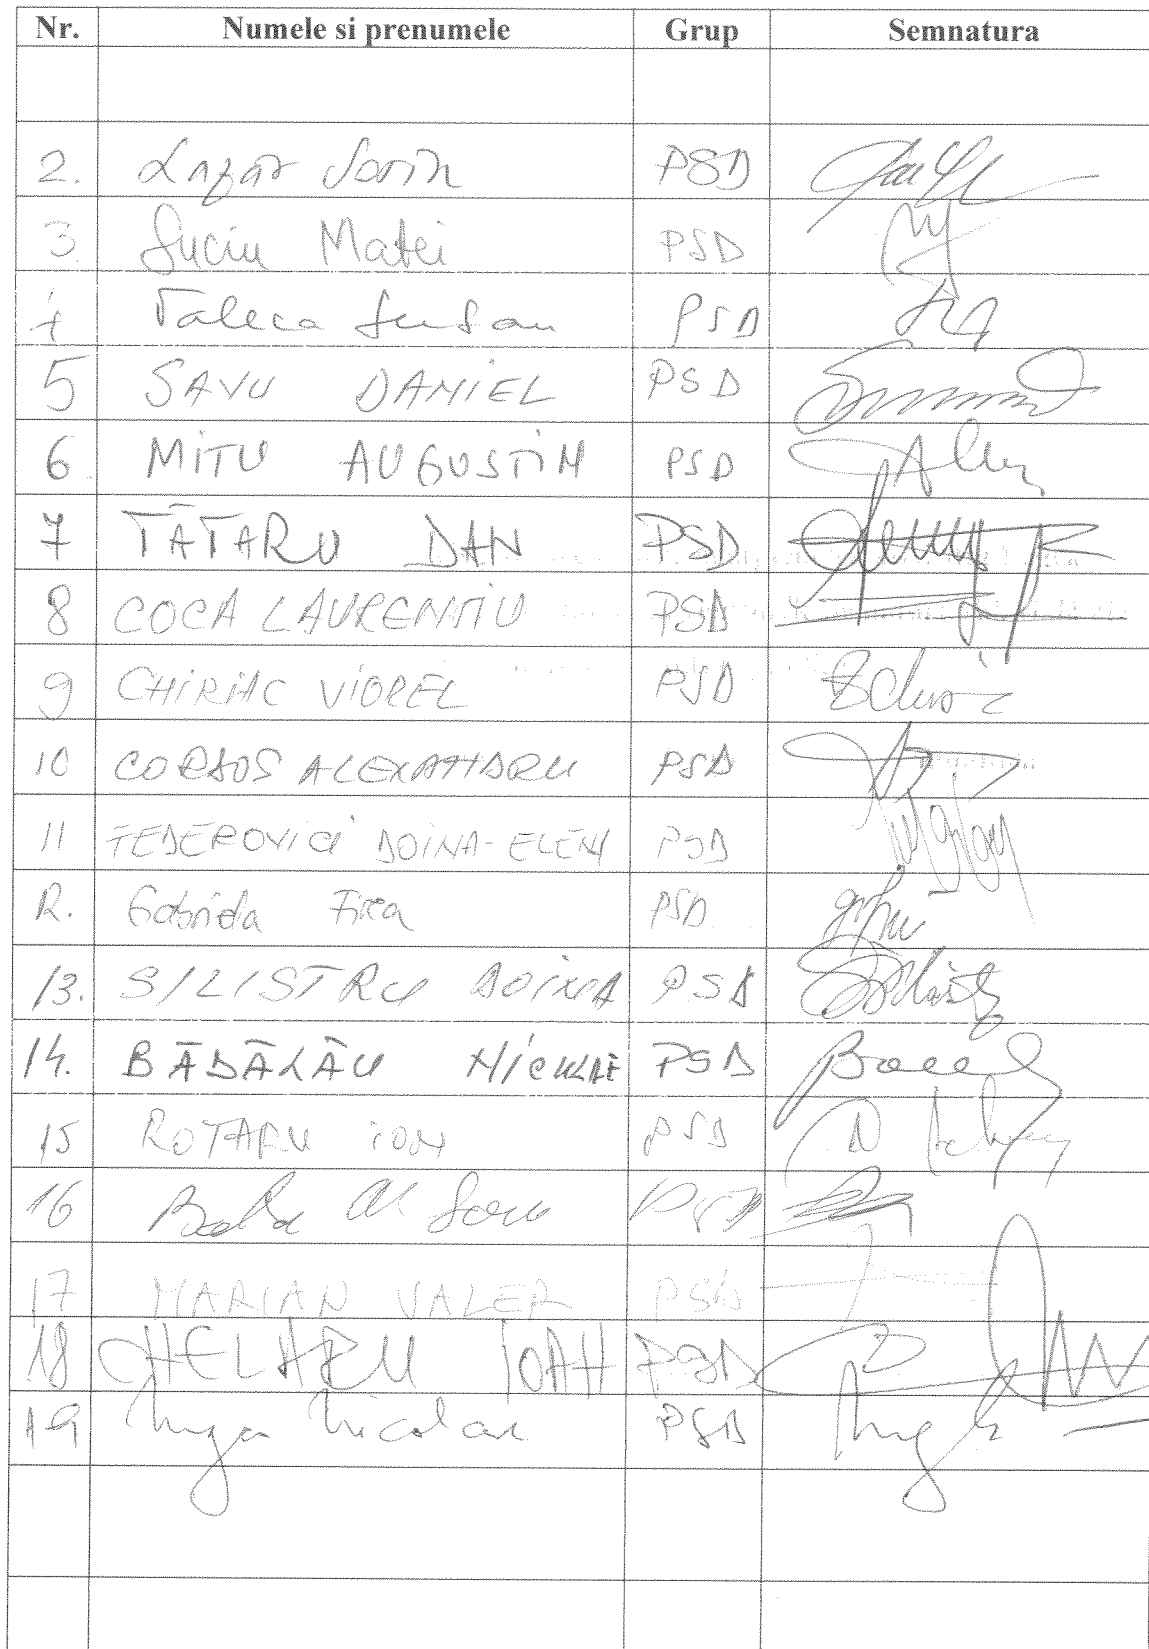 Nr. Numele si prenumele Grup Semnatura
2. Lazăr Sorin PSD
3. Suciu Matei PSD
4 PSD
5 SAVU DANIEL PSD
6 MITU AUGUSTIN PSD
7 TĂTARU DAN PSD
8 COCA LAURENTIU PSD
9 CHIRIAC VIOREL PSD
10 CORDOS ALEXANDRU PSD
11 FEDEROVICI DOINA-ELENA PSD
12. Gabriela Firea PSD
13. SILISTRU DOINA PSD
14. BĂDĂLĂU NICULAE PSD
15 ROTARU ION PSD
16 PSD
17 MARIAN VALER PSD
18 CHELARU IOAN PSD
19 Nicolae PSD